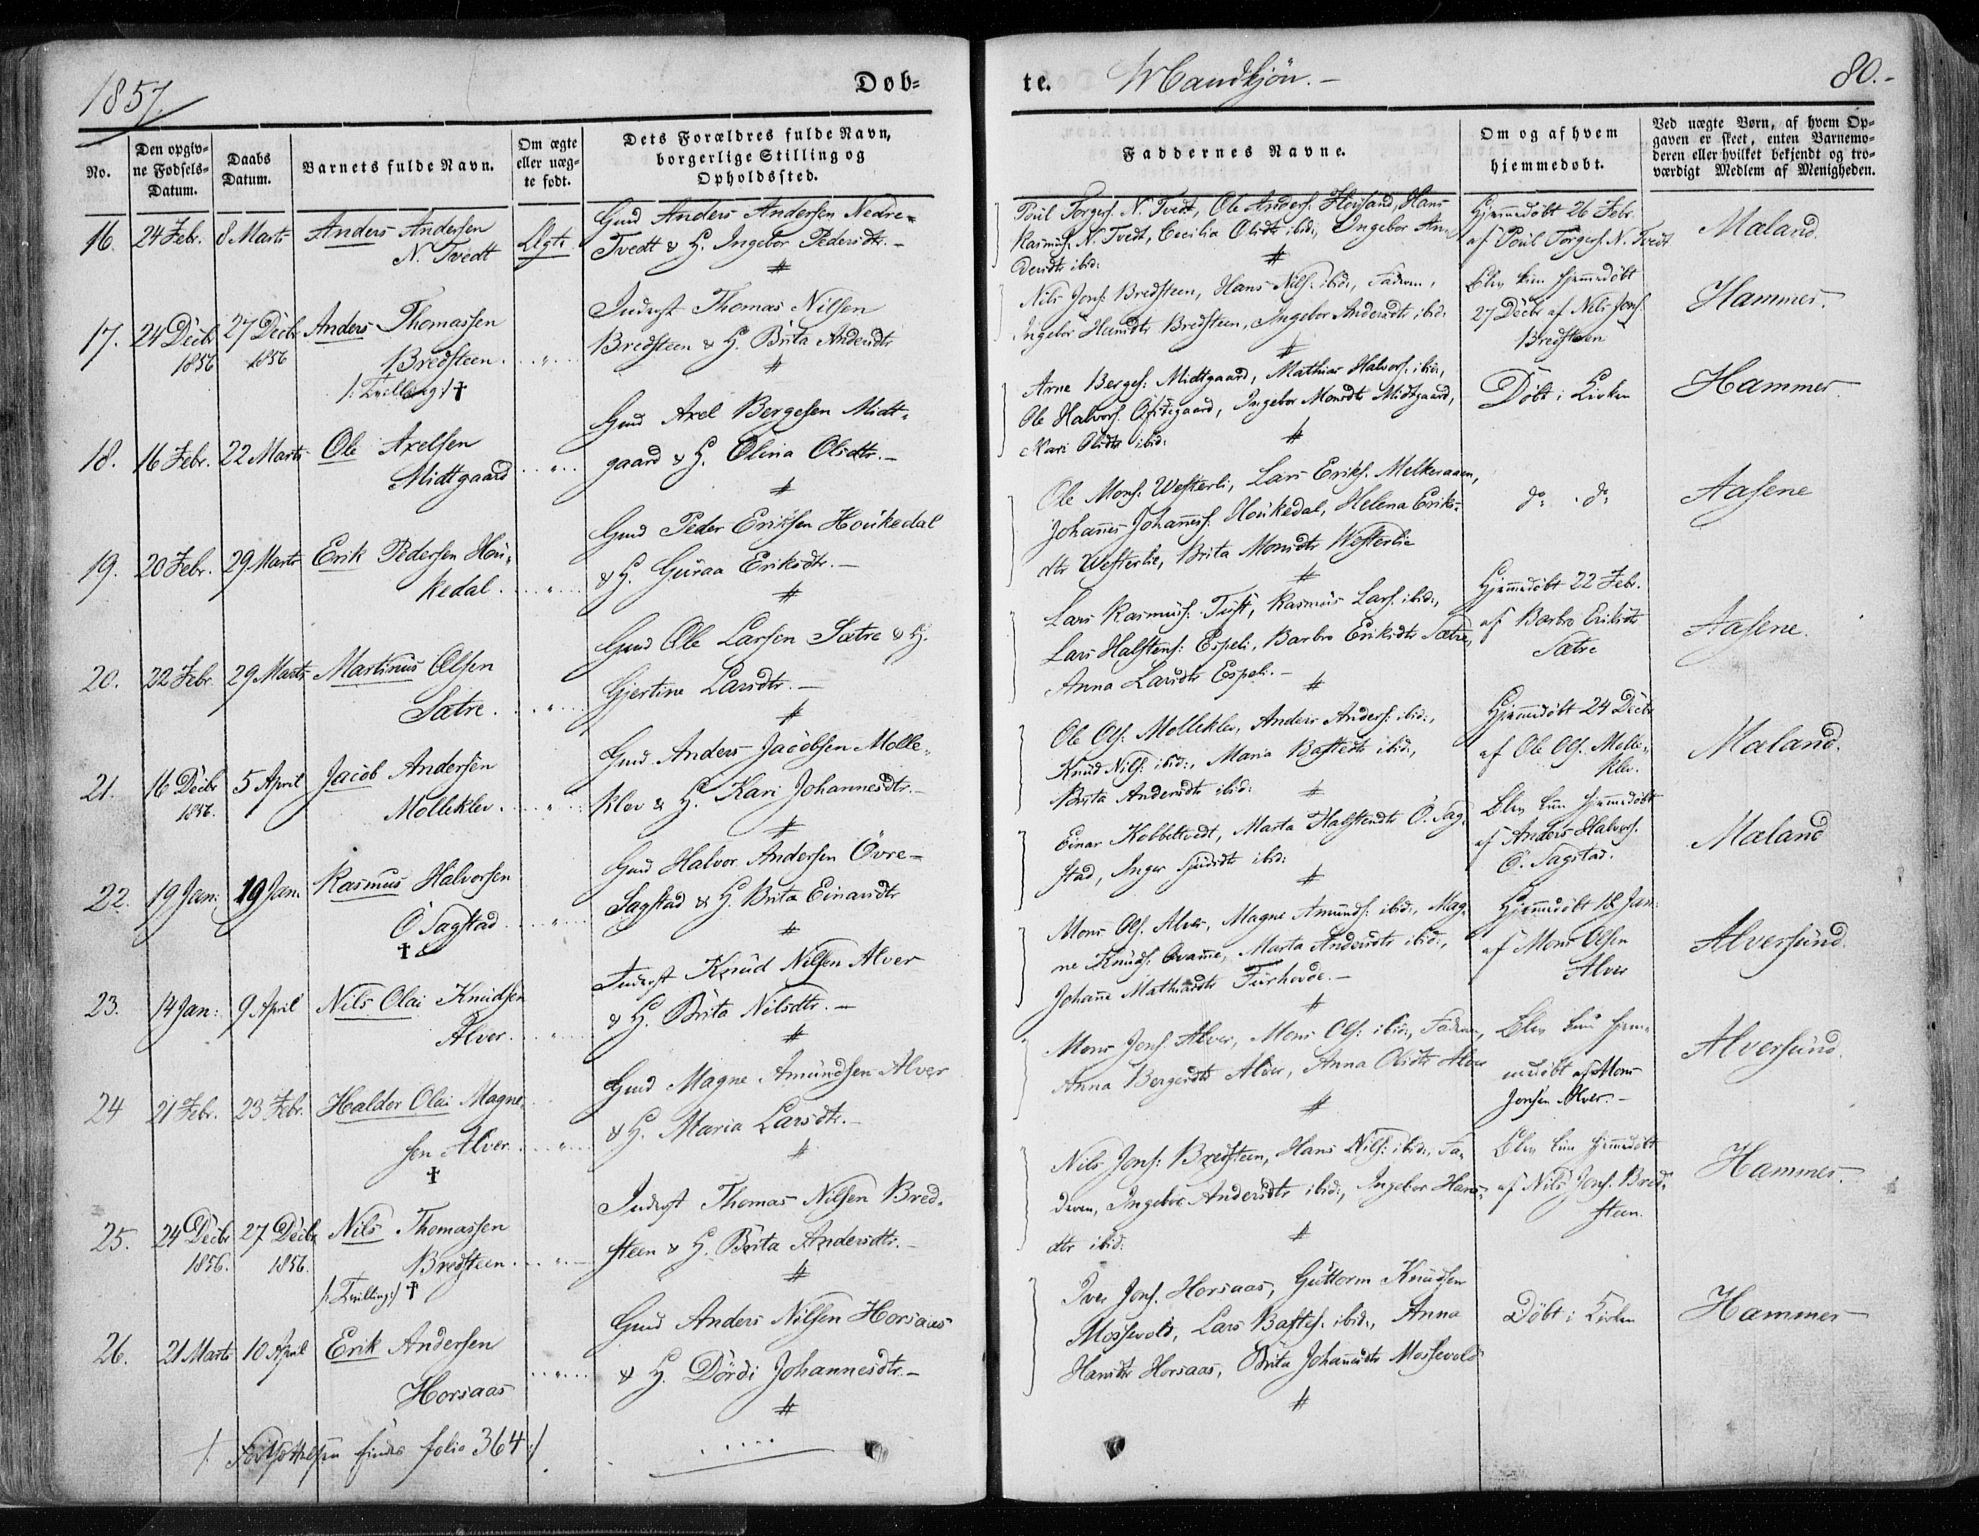 1857.
Døb=
te. Mandkjön.-
80.-
No.
Den opgiv=
ne Fødsels=
Datum.
Daabs
Datum.
Barnets fulde Navn.
Om ægte
eller uæg=
te født.
Dets Forældres fulde Navn,
borgerlige Stilling og
Opholdssted.
Faddernes Navne.
Om og af hvem
hjemmedøbt.
Ved uægte Børn, af hvem Op=
gaven er skeet, enten Barnemo=
deren eller hvilket bekjendt og tro=
værdigt Medlem af Menigheden.
16. 24 Febr. 8 Marts Anders Andersen
N. Tvedt
Ægte
Gmd Anders Andersen Nedre=
Tvedt & H. Ingebor Pedersdtr.-
Poül Torgers. N. Tvedt, Ole Anders. Hopsand, Hans
Rasmus. N. Tvedt, Cecilia Olsdtr ibid:, Ingebor An=
dersdtr ibid:
Hjemmedöbt 26 Febr.
af Poül Torgers. N. Tvedt
Maland.
17. 24 Decbr 27 Decbr Anders Thomassen
1856 1856 Bredsteen.
/: Tvilling :/ †
Inderst Thomas Nilsen
Bredsteen & H. Brita Andersdtr
Nils Jons. Bredsteen, Hans Nils. ibid:, Faderen,
Ingebor Hansdtr Bredsteen, Ingebor Andersdtr ibid:
Blev kun hjemmedöbt
27 Decbr af Nils Jons.
Bredsteen
Hammer.
18. 16 Febr. 22 Marts Ole Axelsen
Midtgaard
Gmd Axel Bergesen Midt=
gaard & H. Olina Olsdtr.-
Arne Berges: Midtgaard, Mathias Halvors. ibid:,
Ole Halvors. Öfstegaard, Ingebor Monsdtr Midtgaard,
Kari Olsdtr ibid:
Döbt i Kirken
Hammer.
19. 20 Febr. 29 Marts Erik Pedersen Hou=
kedal.
Gmd Peder Eriksen Houkedal
& H. Guraa Eriksdtr.-
Ole Mons. Westerli, Lars Eriks. Melkeraaen,
Johannes Johannes. Houkedal, Helena Eriks=
dtr Westerlie, Brita Monsdtr Westerlie
do. do.
Aasene
20. 22 Febr. 29 Marts Martinus Olsen
Sætre.
Gmd Ole Larsen Sætre & H.
Gjertine Larsdtr.-
Lars Rasmus. Tüft, Rasmus Lars. ibid:,
Lars Halstens: Espeli, Barbro Eriksdtr Sætre,
Anna Larsdtr Espeli.-
Hjemmedöbt 22 Febr.
af Barbro Eriksdtr
Sætre
Aasene.
21. 16 Decbr 5 April Jacob Andersen
1856. Molleklev.
Gmd Anders Jacobsen Molle=
klev & H. Kari Johannesdtr.-
Ole Ols. Molleklev, Anders Anders. ibid:,
Knud Nils. ibid:, Maria Bastesdtr ibid:,
Brita Andersdtr ibid:
Hjemmedöbt 24 Decbr
af Ole Ols. Molle=
klev.
Maland.
22. 19 Jan: 19 Jan. Rasmus Halvorsen
Ö Sagstad.
†
Gmd Halvor Andersen Övre=
Sagstad & H. Brita Einarsdtr
Einar Kolbeltvedt, Marta Halstensdtr Ö. Sag=
stad, Inger ibid:
Blev kun hjemmedöbt
af Anders Halvors.
Ö. Sagstad.
Maland
23. 14 Jan: 9 April Nils Olai Knudsen
Alver.
Inderst Knud Nilsen Alver
& H. Brita Nilsdtr.-
Mons Ols. Alver, Magne Amunds. ibid:, Mag=
ne Knuds. Qvamme, Marta Andersdtr ibid:,
Johanna Mathiasdtr Fürhovde.-
Hjemmedöbt 18 Jan:
af Mons Olsen
Alver
Alversund.
24 21 Febr. 23 Febr. Haldor Olai Magne=
sen Alver.
†
Gmd Magne Amundsen Alver
& H. Maria Larsdtr.-
Mons Jons. Alver, Mons Ols. ibid:, Faderen,
Anna Bergesdtr Alver, Anna Olsdtr Alver
Blev kun hjem=
medöbt af Mons
Jonsen Alver.-
Alversund.
25. 24 Decbr 27 Decbr Nils Thomassen
1856. 1856. Bredsteen.
/: Tvilling :/ †
Inderst Thomas Nilsen Bred=
steen & H. Brita Andersdtr.-
Nils Jons: Bredsteen, Hans Nils. ibid:, Fa=
deren, Ingebor Andersdtr ibid:, Ingebor Hans=
dtr ibid.
Blev kun hjemmedöbt
af Nils Jons. Bred=
steen.
Hammer.
26. 21 Marts 10 April Erik Andersen
Horsaas
Gmd Anders Nilsen Horsaas
& H. Dördi Johannesdtr.-
Iver Jons. Horsaas, Guttorm Knudsen
Mossevold, Lars Bastes. ibid:, Anna
Hansdtr Horsaas, Brita Johannesdtr Mossevold
Döbt i Kirken
Hammer
/: Fortsættelsen findes folio 364 :/